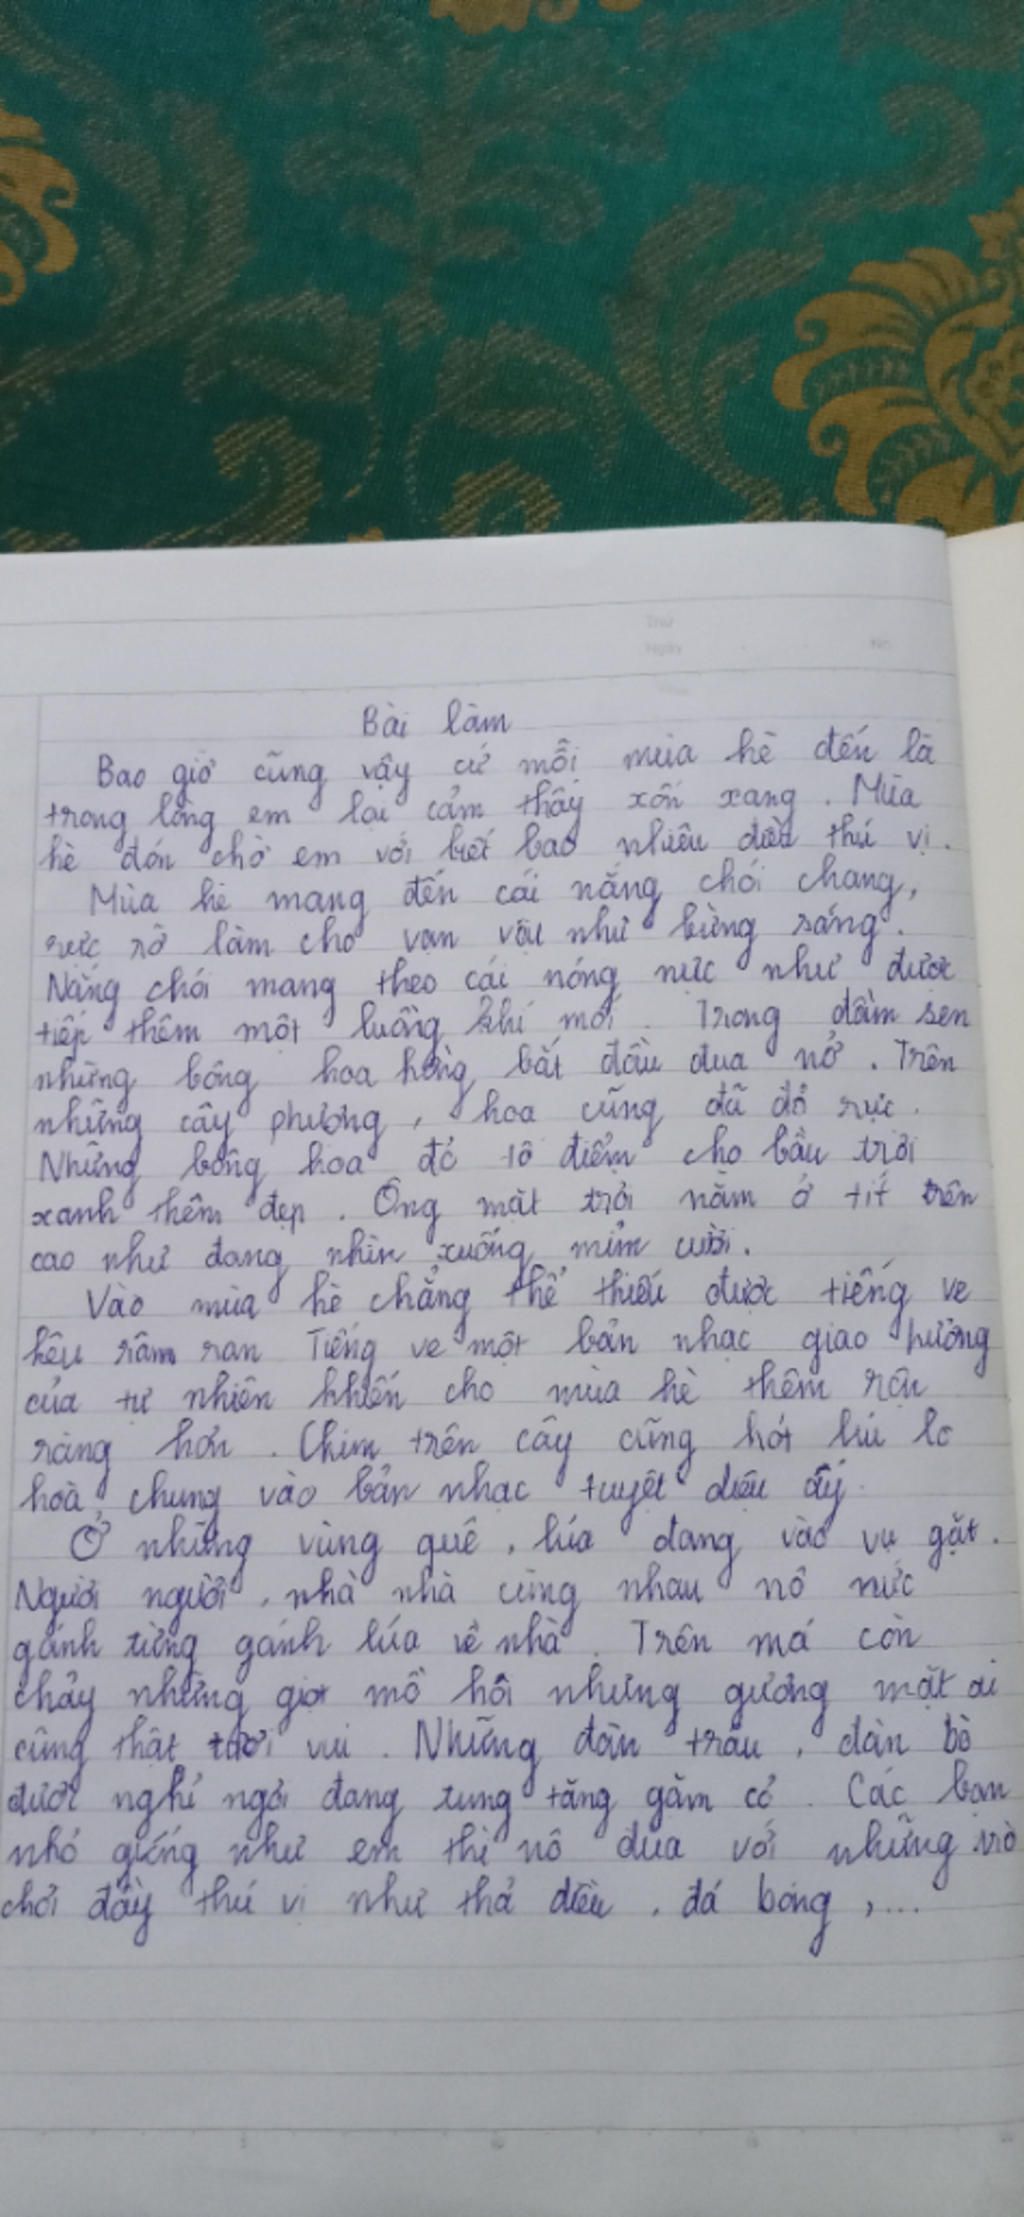 Thứ
Ngày No.
Bài làm
Bao giờ cũng vậy cứ mỗi mùa hè đến là
trong lòng em lại cảm thấy xốn xang. Mùa
hè đón chờ em với biết bao nhiêu điều thú vị.
Mùa hè mang đến cái nắng chói chang,
rực rỡ làm cho vạn vật như bừng sáng.
Nắng chói mang theo cái nóng nực như được
tiếp thêm một luồng khí mới. Trong đầm sen
những bông hoa hồng bắt đầu đua nở. Trên
những cây phượng, hoa cũng đã đỏ rực.
Những bông hoa đỏ tô điểm cho bầu trời
xanh thêm đẹp. Ông mặt trời nằm ở tít trên
cao như đang nhìn xuống mỉm cười.
Vào mùa hè chẳng thể thiếu được tiếng ve
kêu râm ran Tiếng ve một bản nhạc giao hưởng
của tự nhiên khiến cho mùa hè thêm rộn
ràng hơn. Chim trên cây cũng hót líu lo
hoà chung vào bản nhạc tuyệt diệu ấy.
Ở những vùng quê, lúa đang vào vụ gặt.
Người người, nhà nhà cùng nhau nô nức
gánh từng gánh lúa về nhà. Trên má còn
chảy những giọt mồ hôi nhưng gương mặt ai
cũng thật tươi vui. Những đàn trâu, đàn bò
được nghỉ ngơi đang tung tăng gặm cỏ. Các bạn
nhỏ giống như em thì nô đùa với những trò
chơi đầy thú vị như thả diều, đá bóng,...